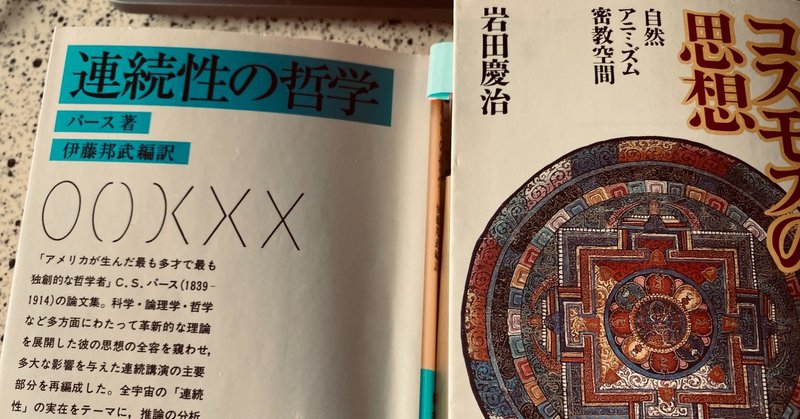 連続性の哲学
パース著
伊藤邦武編訳
「アメリカが生んだ最も多才で最も
独創的な哲学者」C.S.パース(1839-
1914)の論文集。科学・論理学・哲学
など多方面にわたって革新的な理論
を展開した彼の思想の全容を窺わせ,
多大な影響を与えた連続講演の主要
部分を再編成した。全宇宙の「連続
性」の実在をテーマに,推論の分析
コスモスの
思想
自然
アニミズム
密教空間
岩田慶治